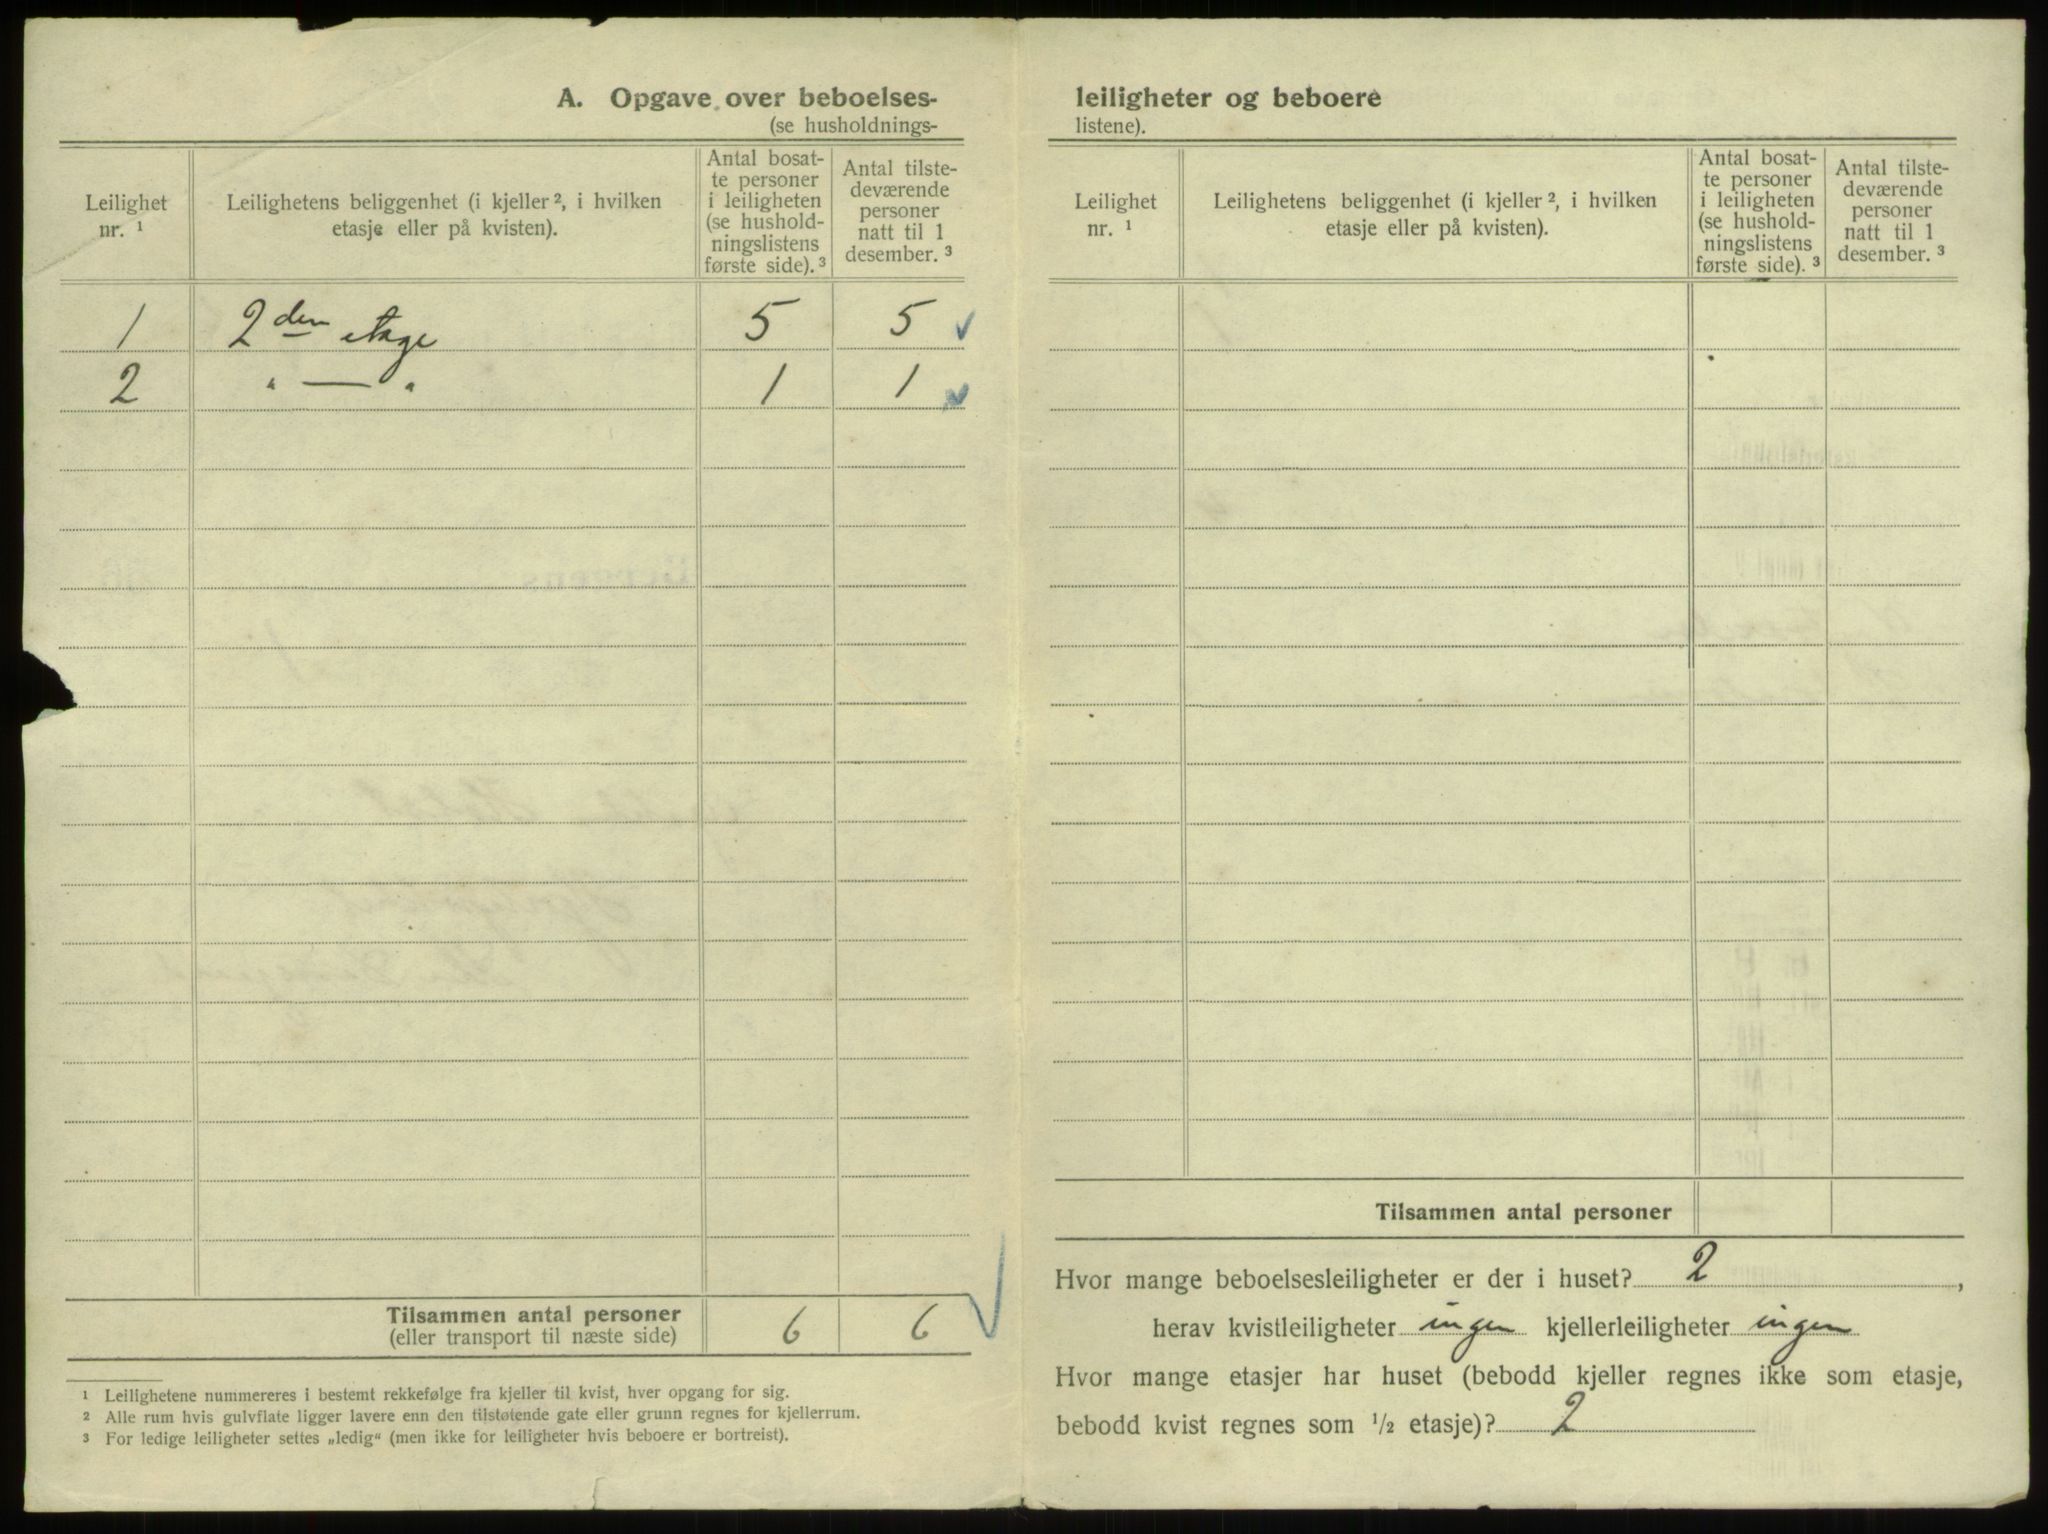 A. Opgave over beboelses-
(se husholdnings-
Leilighet
nr. ¹
Leilighetens beliggenhet (i kjeller ², i hvilken
etasje eller på kvisten).
Antal bosat-
te personer
i leiligheten
(se hushold-
ningslistens
første side). ³
Antal tilste-
deværende
personer
natt til 1
desember. ³
1 2den etage 5 5
2 " — " 1 1
Tilsammen antal personer
(eller transport til næste side) 6 6
¹ Leilighetene nummereres i bestemt rekkefølge fra kjeller til kvist, hver opgang for sig.
² Alle rum hvis gulvflate ligger lavere enn den tilstøtende gate eller grunn regnes for kjellerrum.
³ For ledige leiligheter settes „ledig“ (men ikke for leiligheter hvis beboere er bortreist).
leiligheter og beboere
listene).
Leilighet
nr. ¹
Leilighetens beliggenhet (i kjeller ², i hvilken
etasje eller på kvisten).
Antal bosat-
te personer
i leiligheten
(se hushold-
ningslistens
første side). ³
Antal tilste-
deværende
personer
natt til 1
desember. ³
Tilsammen antal personer
Hvor mange beboelsesleiligheter er der i huset? 2,
herav kvistleiligheter ingen kjellerleiligheter ingen
Hvor mange etasjer har huset (bebodd kjeller regnes ikke som etasje,
bebodd kvist regnes som 1/2 etasje)? 2